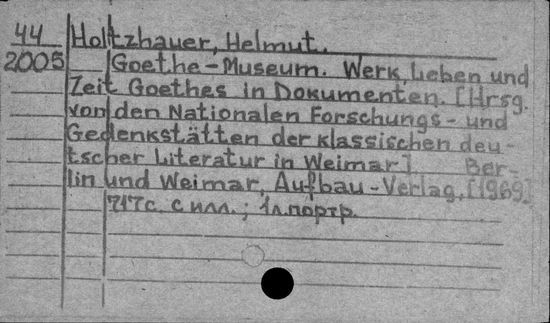 44 Holtzhauer, Helmut.
2005 Goethe-Museum. Werk, Leben und
Zeit Goethes in Dokumenten. [Hrsg.
von den Nationalen Forschungs- und
Gedenkstätten der klassischen deu-
tscher Literatur in Weimar]. Ber-
lin und Weimar, Aufbau-Verlag, [1969]
717с. с илл.; 1л.портр.